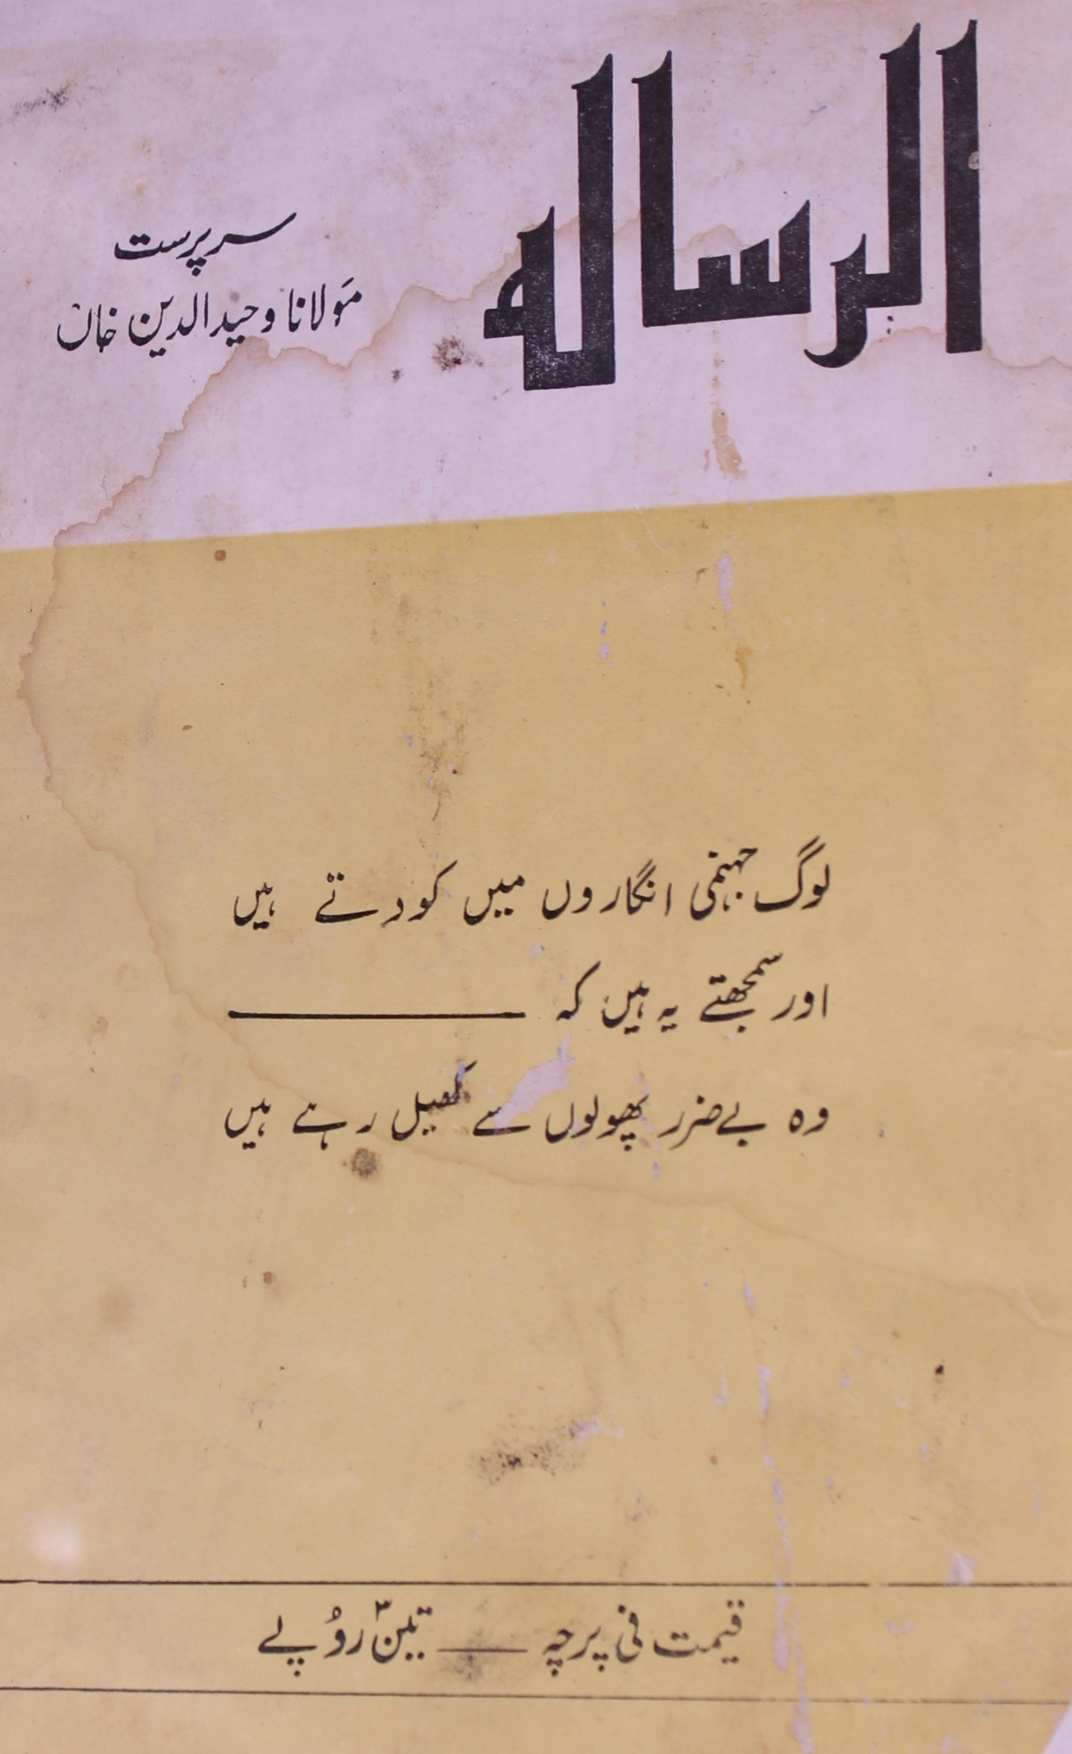 الرسالہ
سرپرست
مولانا وحیدالدین خاں
لوگ جہنمی انگاروں میں کودتے ہیں
اور سمجھتے یہ ہیں کہ ———
وہ بےضرر پھولوں سے کھیل رہے ہیں
قیمت فی پرچہ — تین روپے